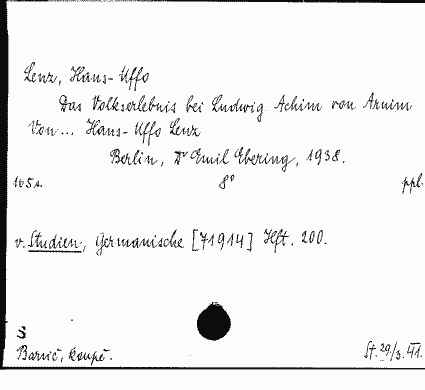 Lenz, Hans-Uffo
Das Volkserlebnis bei Ludwig Achim von Arnim
Von... Hans-Uffo Lenz
Berlin, Dr Emil Ebering, 1938.
165 s. 8° ppl.
v. Studien, Germanische [71914] Hft. 200.
S
Barvič, koupě. St. 29/3. 41.